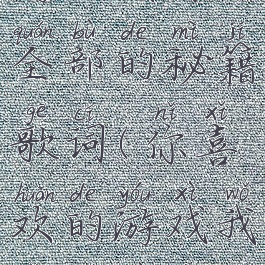 quán bù de mì jí
全部的秘籍
gē cí nǐ xǐ
歌词(你喜
huān de yóu xì wǒ
欢的游戏我